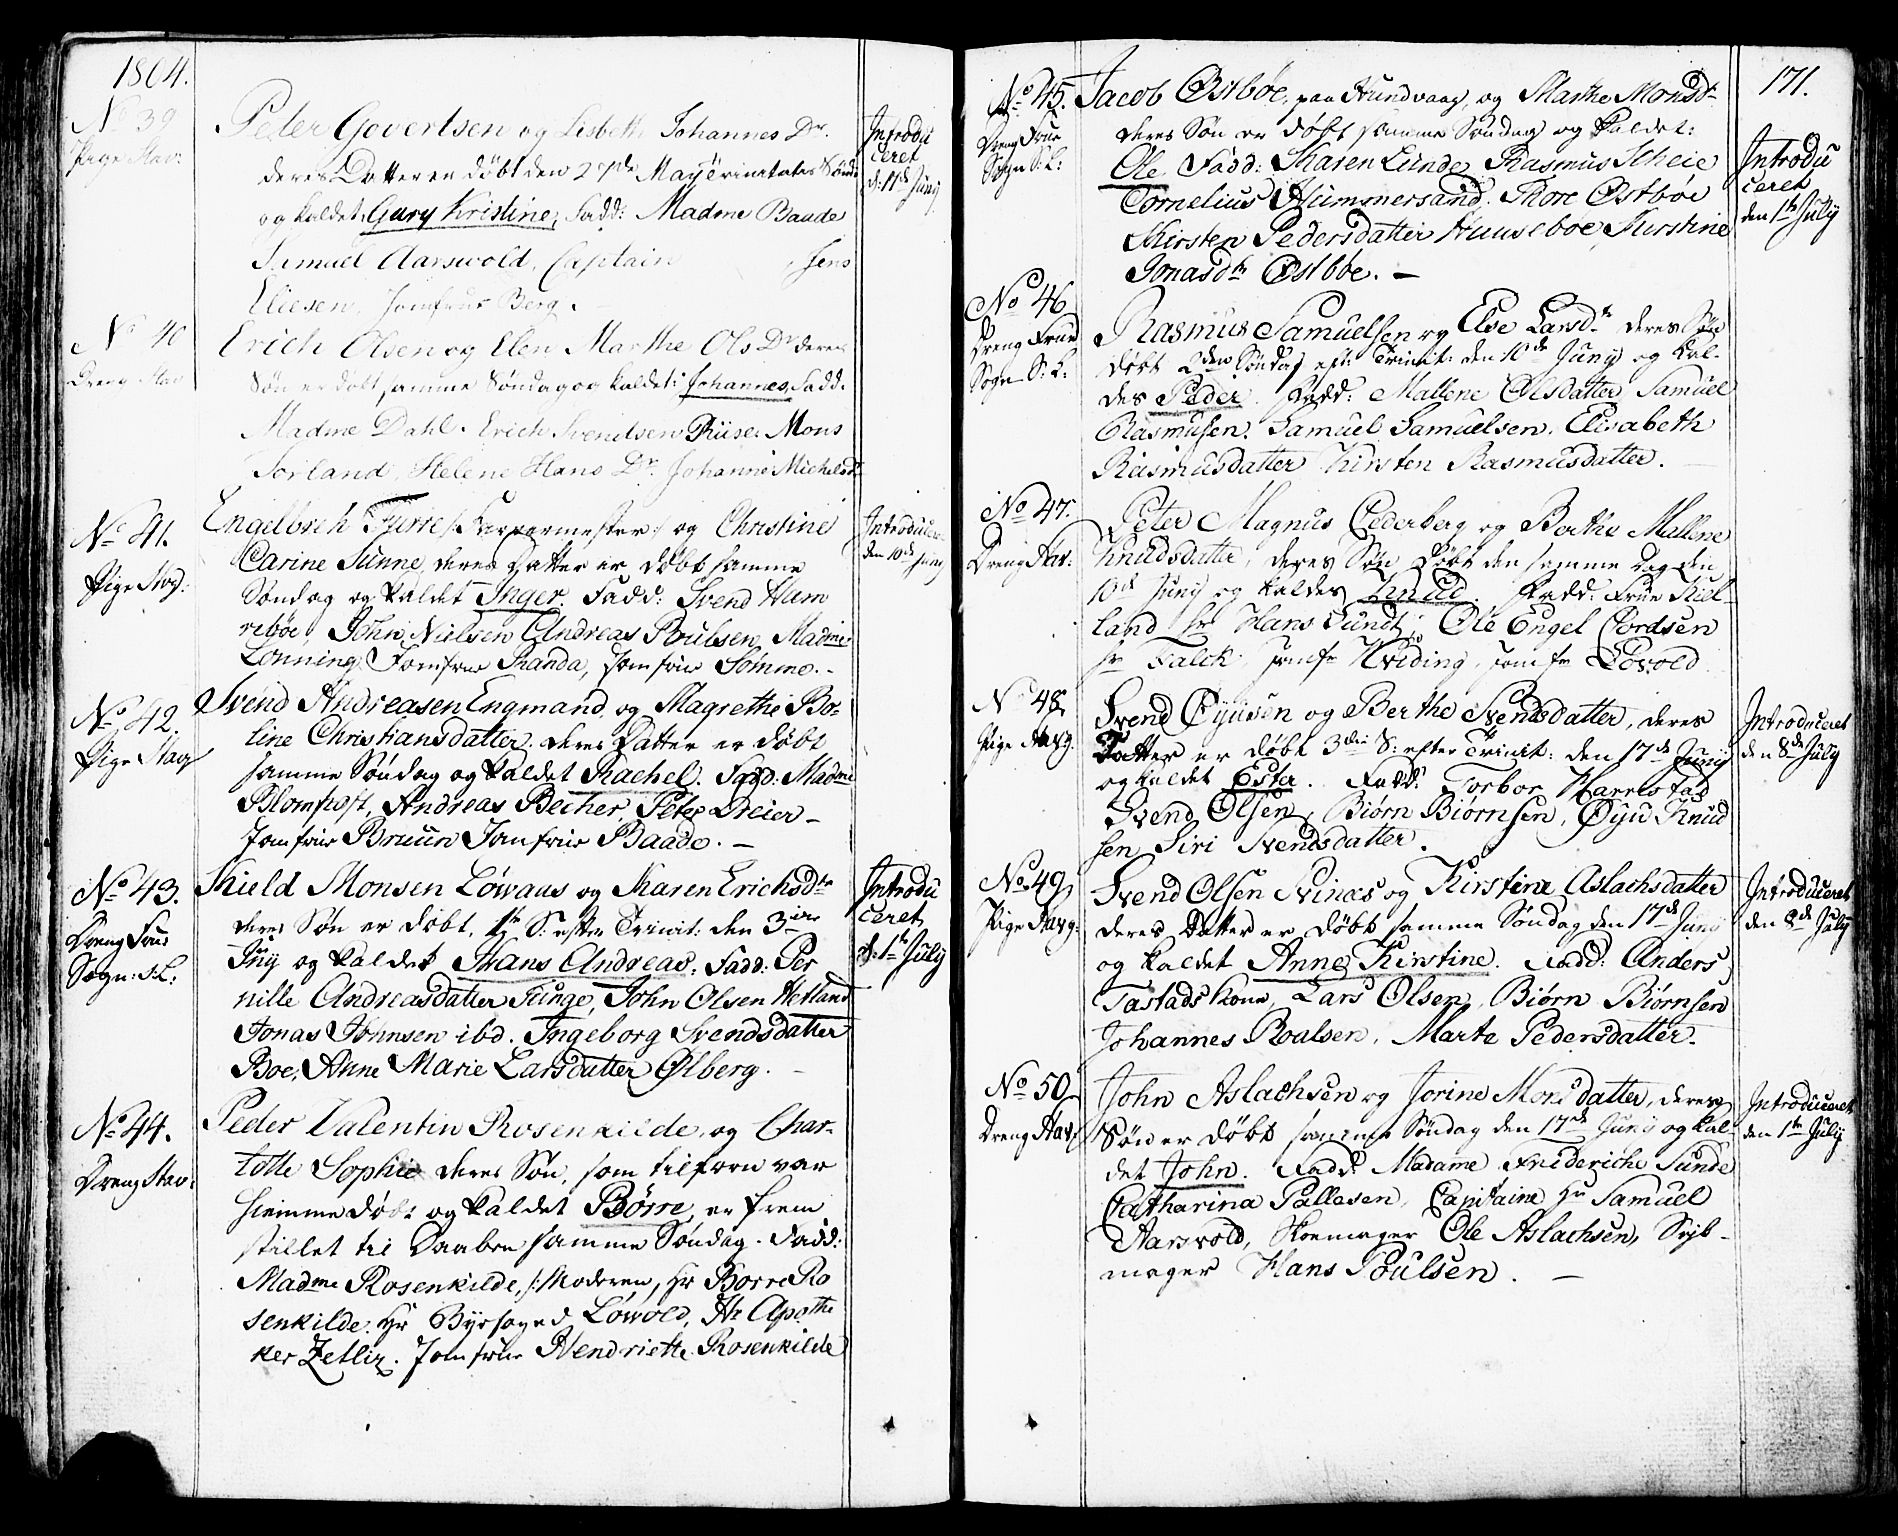 1804.
No 39
Pige Stav:
Peder Govertsen og Lisbeth Johannes Dr.
deres Datter er døbt den 27de May Trinitates Sønd:
og kaldet Gury Kristine, Fadd: Madme Baade
Samuel Aarswold, Captain Jens
Eliesen, Jomfrue Berg.
Introdu
ceret
d: 11te Juny
No 40
Dreng Stav
Erich Olsen og Elen Marthe Ols Dr deres
Søn er døbt samme Søndag og kaldet: Johannes, Fadd:
Madme Dahl. Erich Svendsen Riise. Mons
Sorland, Helene Hans Dr. Johanne Michelsdr
No 41.
Pige Stav:
Engelbreh Furre og Christine
Carine Sunne, deres Datter er døbt samme
Søndag og kaldet Inger. Fadd: Svend Ham
rebøe, John Nielsen Andreas Poulsen, Madme
Lønning, Jomfrue Randa, Jomfrue Sømme.-
Introduceret
den 10de Juny
No 42.
Pige Stav
Svend Andreasen Engmand, og Magrethe Bo-
line Christiansdatter, deres Datter er døbt
samme Søndag og kaldet Rachel. Fadd: Madme
Blomhoft, Andreas Becher, Peter Dreier -
Jomfrue Bruun Jomfrue Baade. -
No 43.
Dreng Frue
Sogn: S:L:
Kield Monsen Løwaas og Karen Erichsdtr
deres Søn er døbt, 1te S: efter Trinit: den 3die
Juny og kaldet Hans Andreas. Fadd: Per
nille Andreasdatter Tunge, John Olsen Hetland
Jonas Johnsen ibd. Ingeborg Svendsdatter
Boe, Anne Marie Larsdatter Ølberg. -
Introdu
ceret
d: 1te July
No 44.
Dreng Stav:
Peder Valentin Rosenkilde, og Char-
lotte Sophie deres Søn, som tilforn var
hiemmedøbt og kaldet Børre, er frem
stillet til Daaben samme Søndag. Fadd:
Madme Rosenkilde, /:Moderen, Hr Borre Ro
senkilde. Hr Byefoged Løwold, Hr Apothe
ker Zetliz. Jomfrue Hendriette Rosenkilde
171.
No 45.
Dreng Frue
Sogn S:L:
Jacob Østbøe, paa Hundvaag, og Marthe Monsdr
deres Søn er døbt samme Søndag og kaldet:
Ole Fadd: Karen Lunde, Rasmus Scheie
Cornelius Hummersand. Thore Østbøe
Kirsten Pedersdatter Huuseboe, Kirstine
Jonasdtr Østbøe. -
Introdu
ceret
den 1te July
No 46
Dreng Frue
Sogn S:L:
Rasmus Samuelsen og Else Larsdr deres Søn
døbt 2den Søndag eft: Trinit: den 10de Juny og kal-
des Peder. Fadd: Mallene Olsdatter Samuel
Rasmusen. Samuel Samuelsen. Elisabeth
Rasmusdatter Kirsten Rasmusdatter.
No 47.
Dreng Stav:
Peter Magnus Cederberg og Berthe Mallene
Knudsdatter, deres Søn døbt den samme Dag den
10de Juny og kaldes Knud. Fadd: Frue Kiel-
land, Hr Hans Sundt, Ole Engel Cordsen
Hr Falck, Jomfr Hviding, Jomfr Løvold
No 48
Pige Stavg.
Svend Øyusen og Berthe Svendsdatter, deres
Datter er døbt 3die S: efter Trinit: den 17de Juny
og kaldet Ester. Fadd: Torbor Harrestad
Svend Olsen, Biørn Biørnsen, Øyu Knud
sen Siri Svendsdatter.
Introduceret
den 8de July
No 49
Pige Stavg.
Svend Olsen Svinæs og Kirstine Aslachsdatter
deres Datter er døbt samme Søndag den 17de Juny
og kaldet Anne Kirstine. Fadd: Anders
Tastads Kone, Lars Olsen, Biørn Biørnsen
Johannes Roalsen, Marte Pedersdatter.
Introduceret
den 8de July
No 50
Dreng Stav:
John Aslachsen og Jorine Monsdatter, deres
Søn er døbt samme Søndag den 17de Juny og kal-
det John. Fadd: Madame Frideriche Sunde
Catharina Pallesen, Capitaine Hr Samuel
Aarsvold, Skomager Ole Aslachsen, Seyl-
mager Hans Poulsen. -
Introduceret
den 1te July